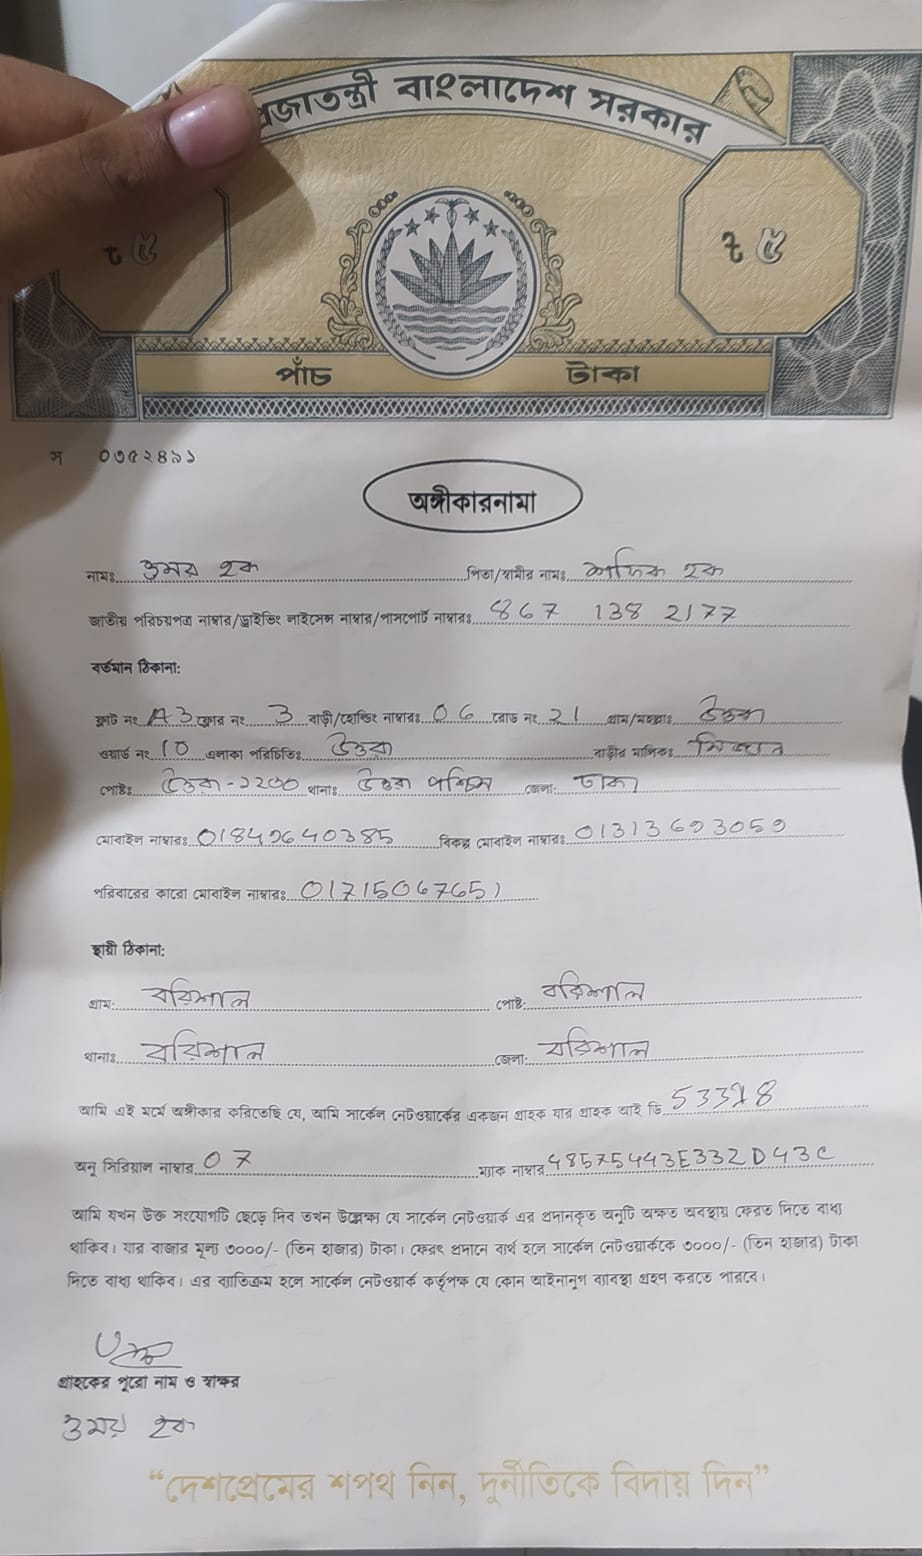 প্রজাতন্ত্রী বাংলাদেশ সরকার
৳ ৫ ৳ ৫
পাঁচ টাকা
স ০৩৫২৪৯১
অঙ্গীকারনামা
নামঃ ওমর হক পিতা/স্বামীর নামঃ হক
জাতীয় পরিচয়পত্র নাম্বার/ড্রাইভিং লাইসেন্স নাম্বার/পাসপোর্ট নাম্বারঃ 867 138 2177
বর্তমান ঠিকানা:
ফ্লাট নং A3 ফ্লোর নং 3 বাড়ী/হোল্ডিং নাম্বারঃ 06 রোড নং 21 গ্রাম/মহল্লাঃ উত্তরা
ওয়ার্ড নং 10 এলাকা পরিচিতিঃ উত্তরা বাড়ীর মালিকঃ মিজান
পোষ্টঃ উত্তরা - থানাঃ উত্তরা পশ্চিম জেলা: ঢাকা
মোবাইল নাম্বারঃ 01849640385 বিকল্প মোবাইল নাম্বারঃ 01313693059
পরিবারের কারো মোবাইল নাম্বারঃ 01715067651
স্থায়ী ঠিকানা:
গ্রাম: বরিশাল পোষ্ট: বরিশাল
থানাঃ বরিশাল জেলা: বরিশাল
আমি এই মর্মে অঙ্গীকার করিতেছি যে, আমি সার্কেল নেটওয়ার্কের একজন গ্রাহক যার গ্রাহক আই ডি
অনু সিরিয়াল নাম্বার 07 ম্যাক নাম্বার 48575443E332D43C
আমি যখন উক্ত সংযোগটি ছেড়ে দিব তখন উল্লেক্ষ্য যে সার্কেল নেটওয়ার্ক এর প্রদানকৃত অনুটি অক্ষত অবস্থায় ফেরত দিতে বাধ্য
থাকিব। যার বাজার মূল্য ৩০০০/- (তিন হাজার) টাকা। ফেরৎ প্রদানে ব্যর্থ হলে সার্কেল নেটওয়ার্ককে ৩০০০/- (তিন হাজার) টাকা
দিতে বাধ্য থাকিব। এর ব্যাতিক্রম হলে সার্কেল নেটওয়ার্ক কর্তৃপক্ষ যে কোন আইনানুগ ব্যাবস্থা গ্রহণ করতে পারবে।
গ্রাহকের পুরো নাম ও স্বাক্ষর
ওমর হক
“দেশপ্রেমের শপথ নিন, দুর্নীতিকে বিদায় দিন”